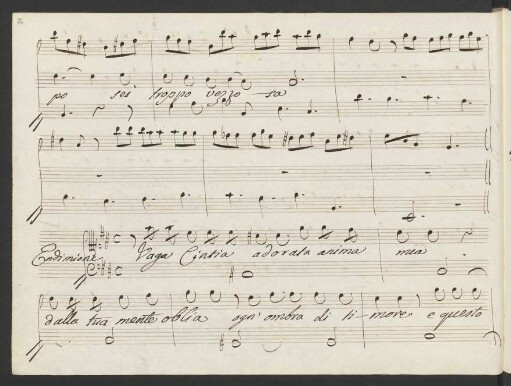 po sei troppo vezzo - sa
Endimione Vaga Cintia adorata anima mea
dalla tua mente oblia ogn' ombra di ti-more e questo